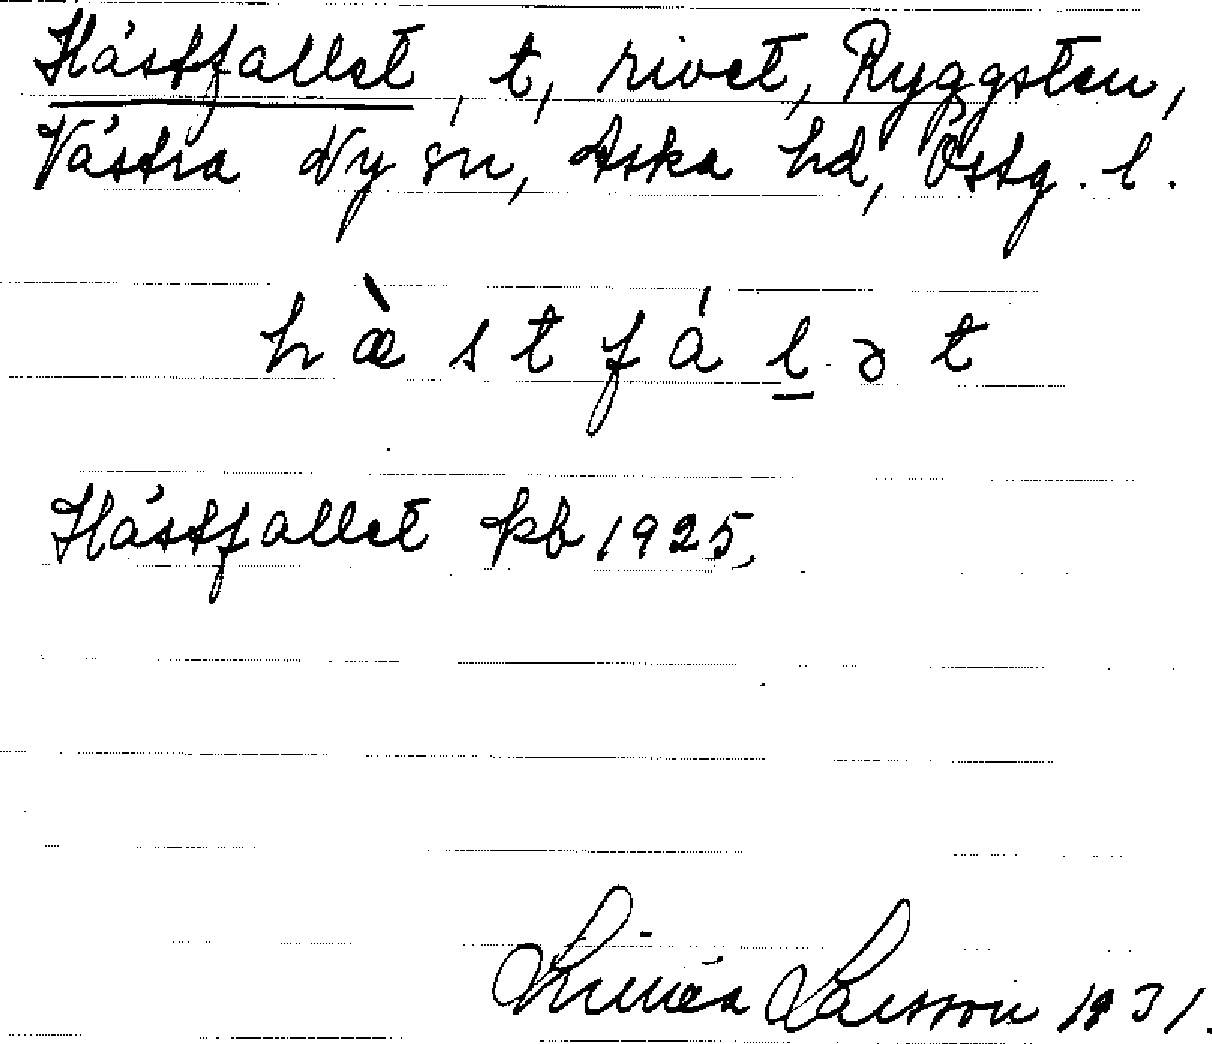 Hästfallet, t, rivet, Ryggsten,
Västra Ny sn, Aska hd, Östg. l.
hæ̀stfál̠ət
Hästfallet kb 1925.
Linnéa Larsson 1931.